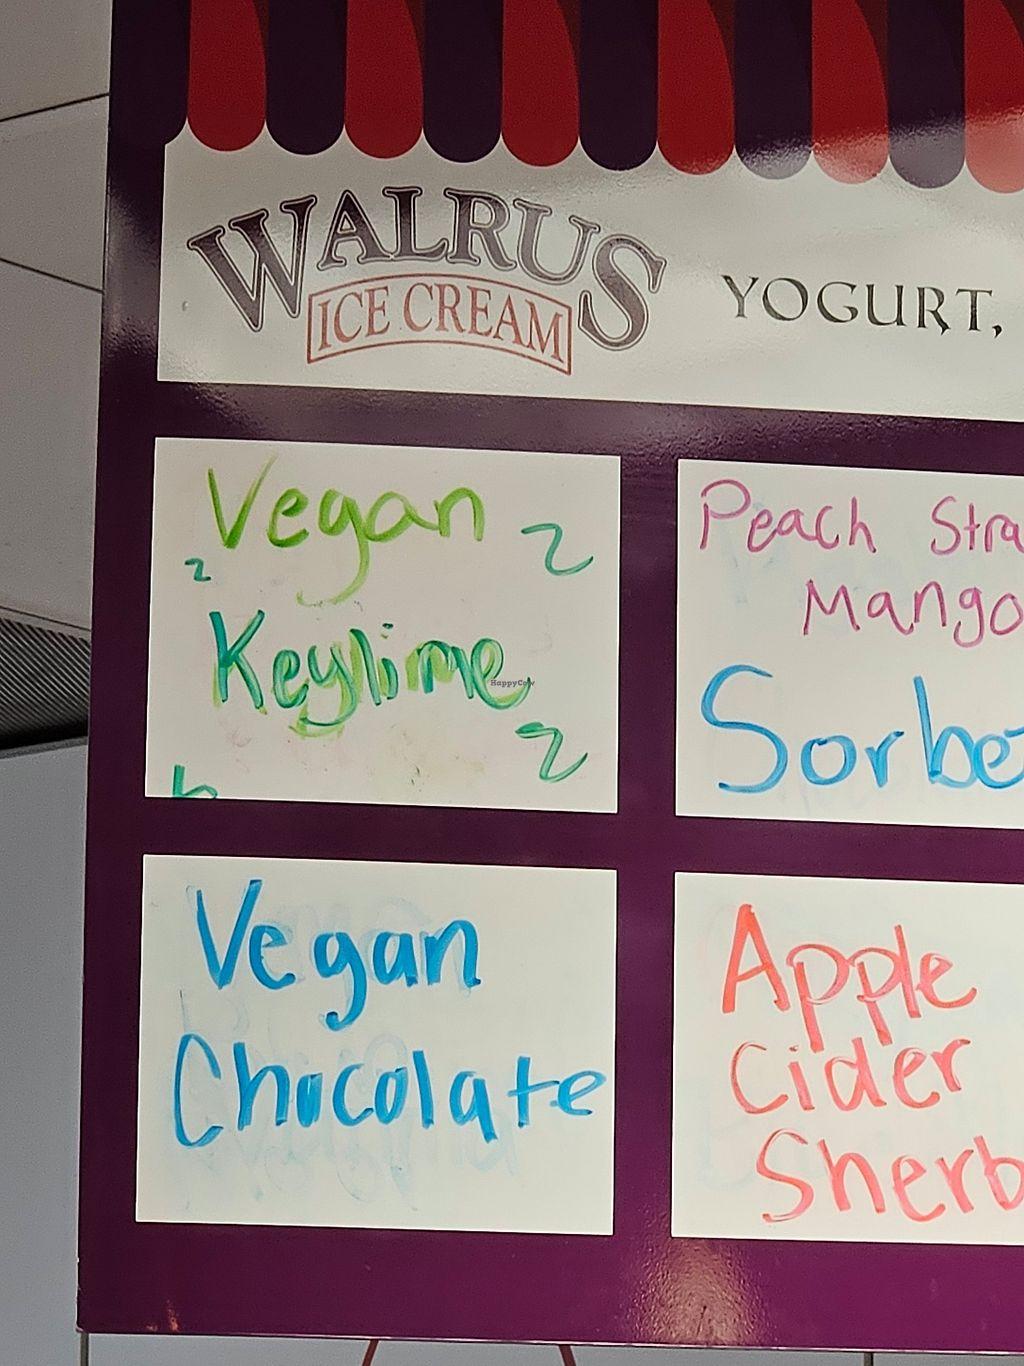 WALRUS
ICE CREAM
YOGURT,
Vegan
Keylime
Peach Stra
Mango
Sorbe
Vegan
Chocolate
Apple
Cider
Sherb
HappyCow